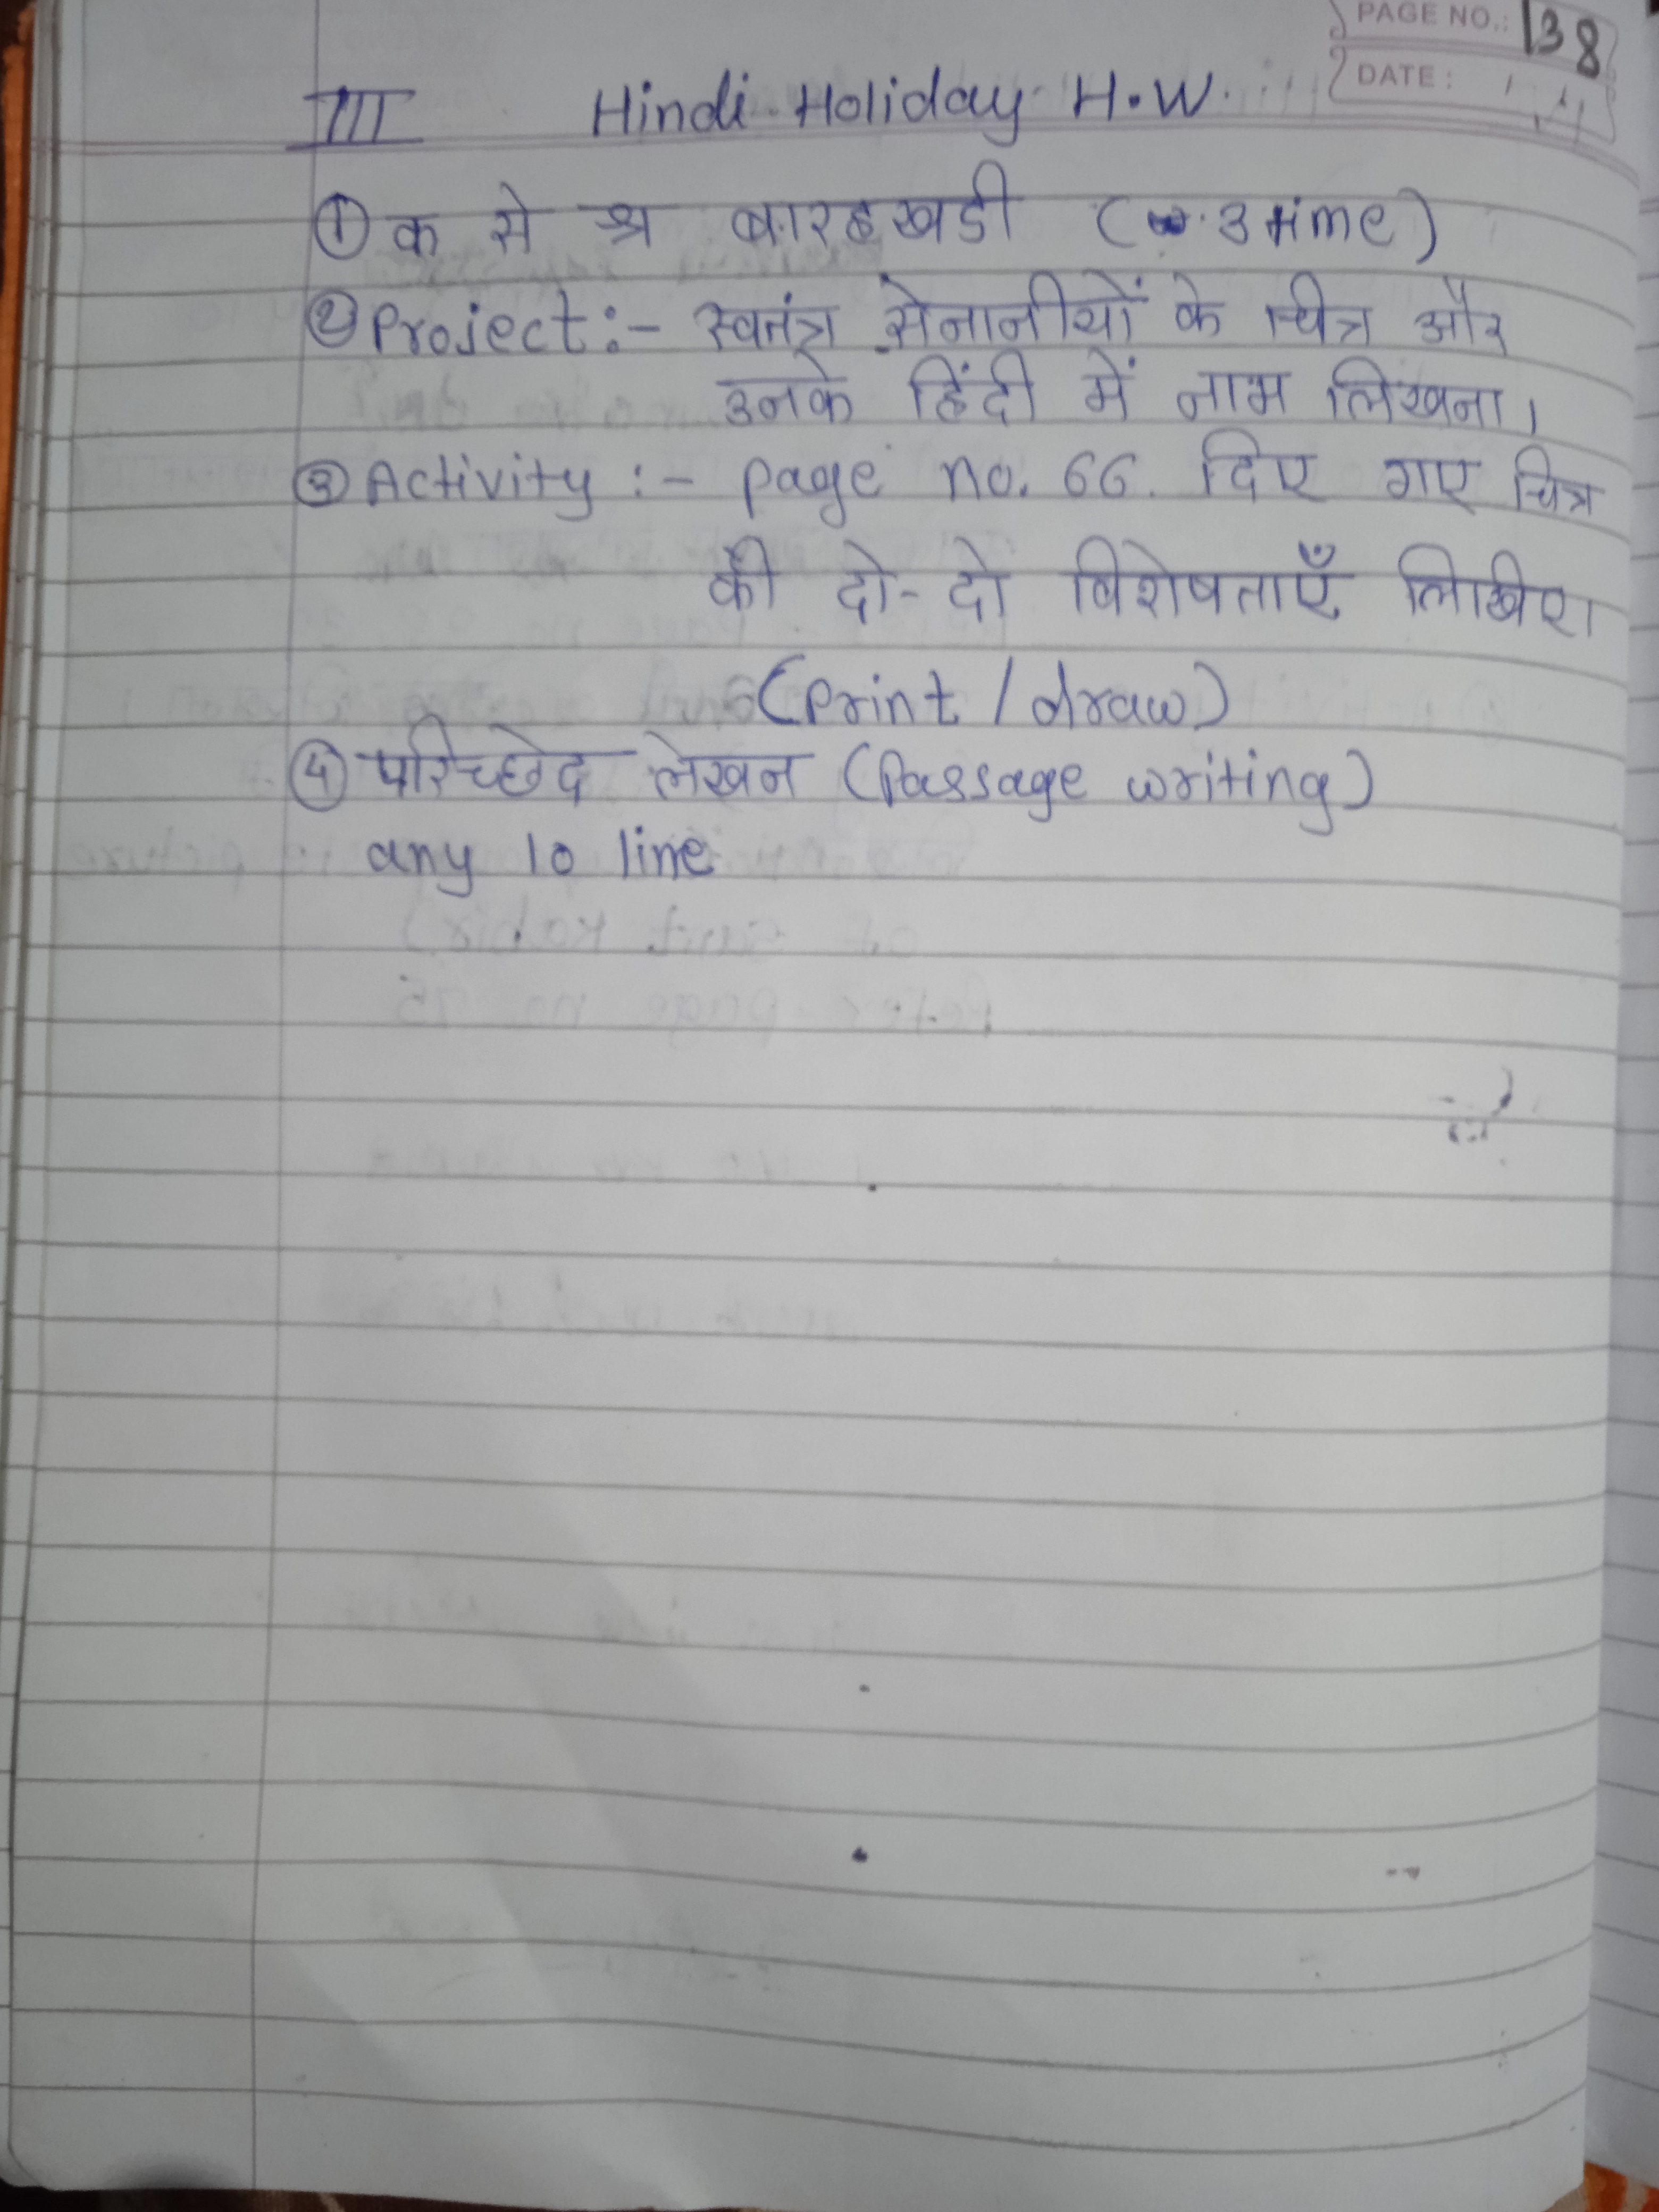 PAGE NO.: 138
DATE :
III Hindi Holiday H.W.
① क से श्र बारहखडी ( 3 time)
② Project:- स्वतंत्र सेनानीयों के चित्र और
उनके हिंदी में नाम लिखना।
③ Activity :- page no. 66. दिए गए चित्र
की दो-दो विशेषताएँ लिखिए।
(print / draw)
④ परिच्छेद लेखन (Passage writing)
any 10 line